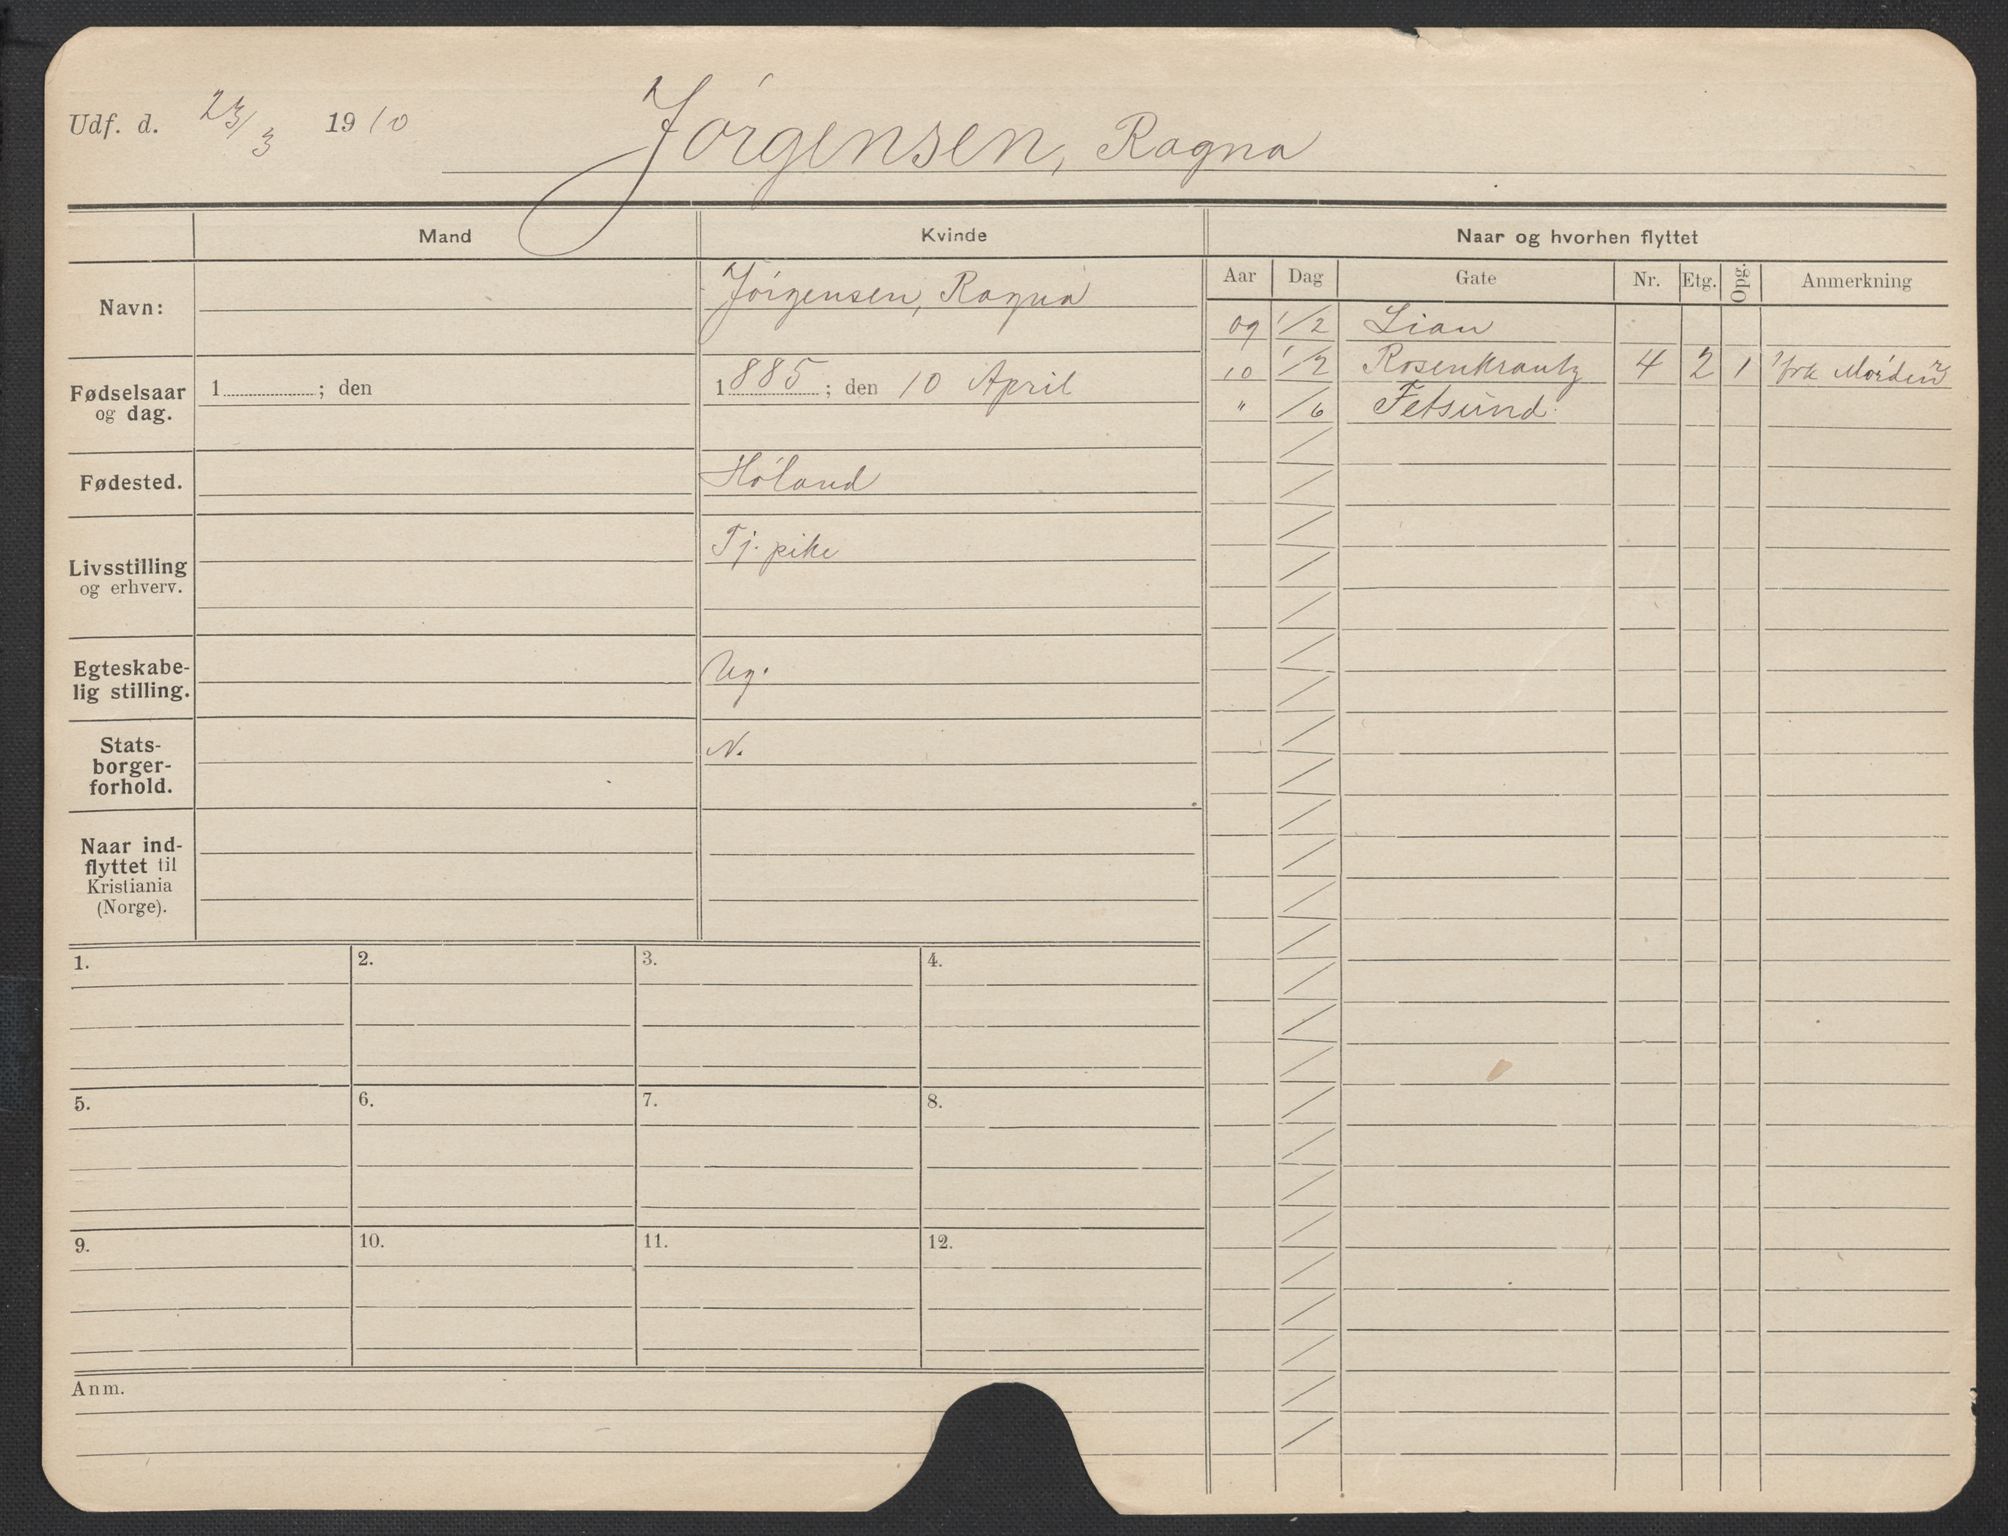 Udf. d. 23/3 1910 Jørgensen, Ragna
Mand
Kvinde
Naar og hvorhen flyttet
Aar Dag Gate Nr. Etg. Opg. Anmerkning
09 1/2 Lian
10 1/2 Rosenkrantz 4 2 1
" /6 Fetsund.
Navn:
Jørgensen, Ragna
Fødselsaar
og dag.
1 ; den
1885 ; den 10 April
Fødested.
Høland
Livsstilling
og erhverv.
Tj. pike
Egteskabe-
lig stilling.
Ug.
Stats-
borger-
forhold.
N.
Naar ind-
flyttet til
Kristiania
(Norge).
1. 2. 3. 4.
5. 6. 7. 8.
9. 10. 11. 12.
Anm.